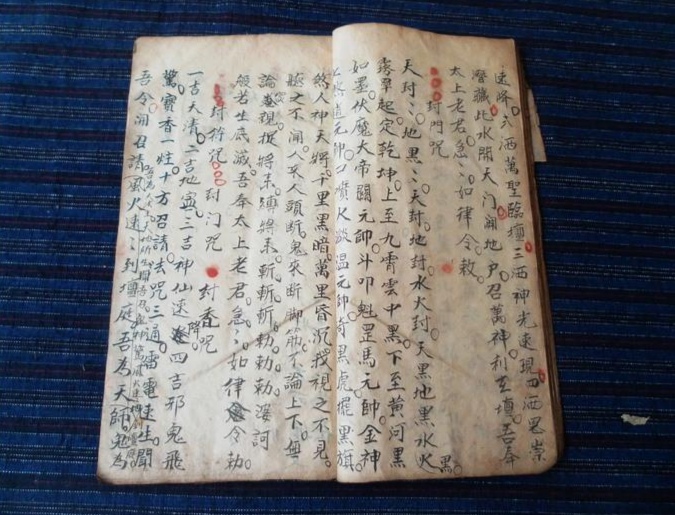 速降六洒萬聖臨壇三洒神光速現四洒鬼祟
潛藏此水開天门闭地户召萬神利至壇吾奉
太上老君急〻如律令敕
封門咒
天封〻地黑〻天封地封水火封天黑地黑水火黑
霧罩起定乾坤上至九霄雲中黑下至黄河黑
如墨伏魔大帝關元帥斗叩魁罡馬元帥金神
元帥口噴火燄温元帥奇黑虎擺黑旗
煞人神天將千里黑暗萬里昏沉我視之不見
聽之不闻人來人頭断鬼來断脚肋不論上下無
論速現捉將来縛將来斬斬斬勅勅勅潘訶
般若生底滅吾奉太上老君急〻如律令勅
封符咒 封门咒 封香咒
一吉天清二吉地寧三吉神仙速降四吉邪鬼飛
驚寶香一炷十方召請法咒三通雷電速生聞
吾令闻召請風火速〻到壇庭吾為天師鬼為